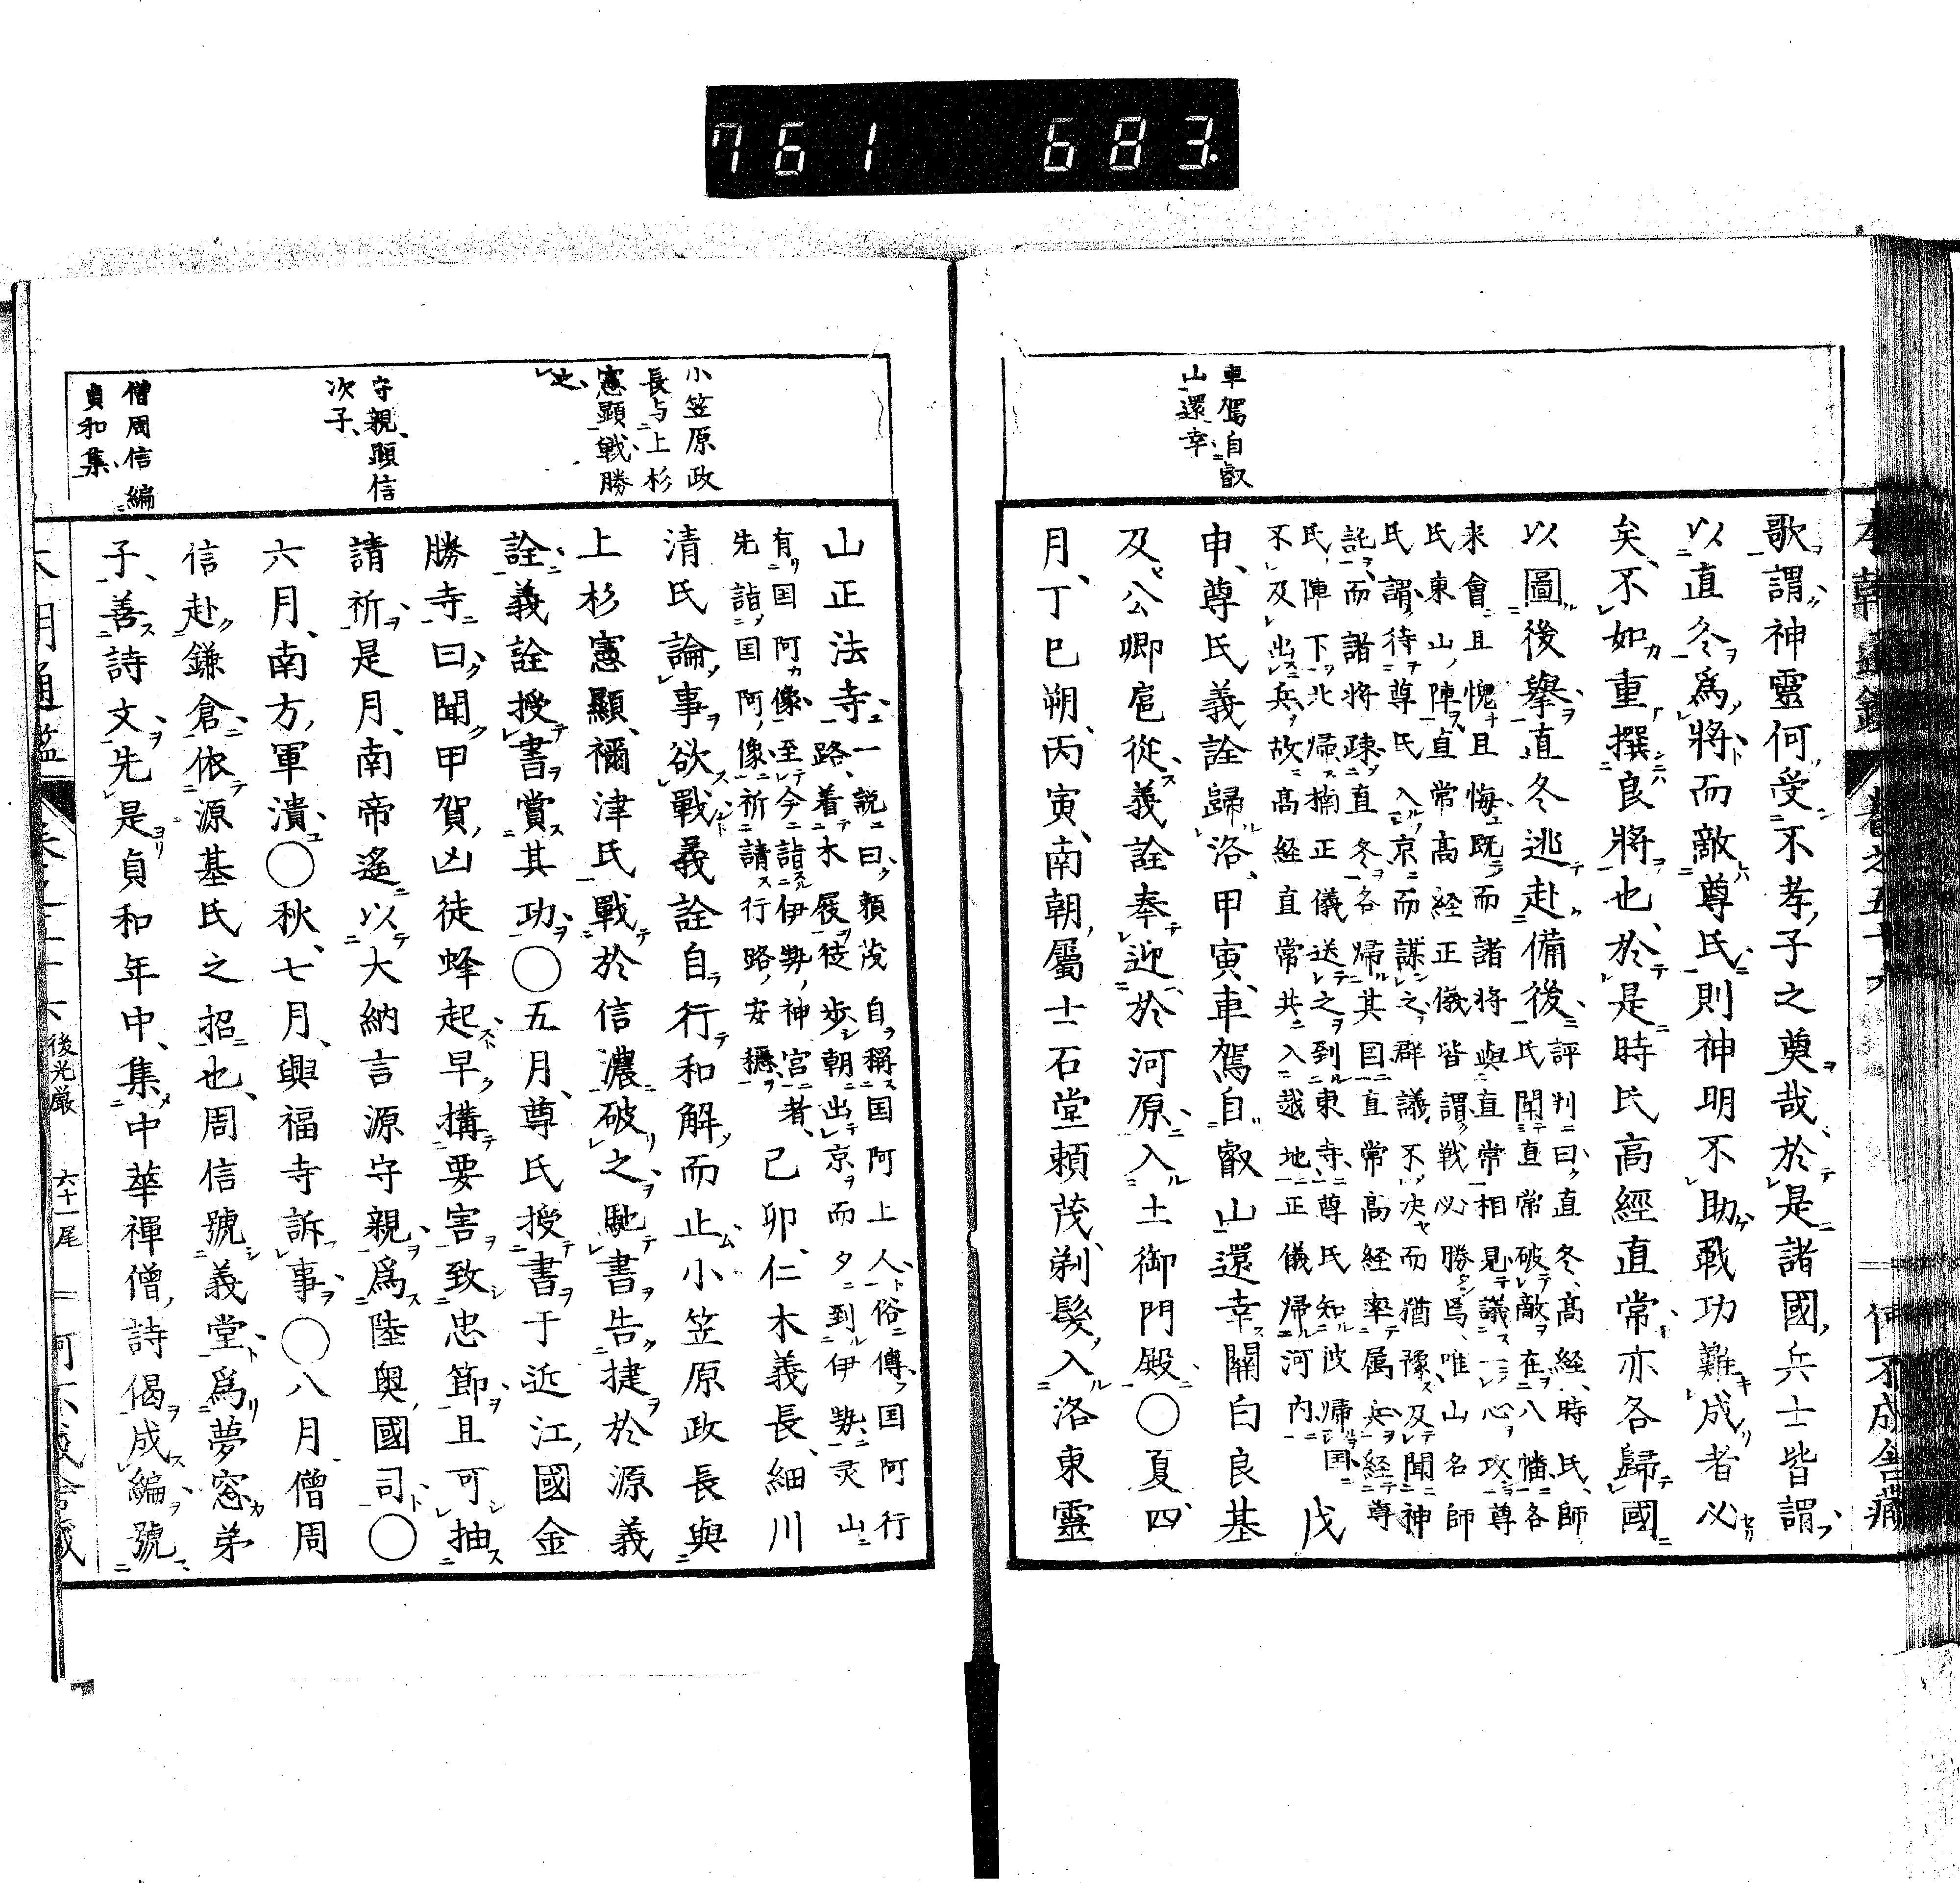 761 683.
車駕自叡
山還幸
歌謂神靈何受不孝子之奠哉於是諸國兵士皆謂
以直冬爲將而敵尊氏則神明不助戰功難成者必
矣不如重撰良將也於是時氏高經直常亦各歸國
以圖後擧直冬逃赴備後
評判曰直冬高經時氏師
氏聞直常破敵在八幡各
来會且愧且悔既而諸将與直常相見議一心攻尊
氏東山陣直常高経正儀皆謂戦必勝焉唯山名師
氏謂待尊氏入京而謀之群議不決而猶豫及聞神
託而諸将疎直冬各帰其国直常高経率属兵経尊
氏陣下北帰楠正儀送之到東寺尊氏知彼帰国
不及出兵故高経直常共入越地正儀帰河内
戊
申尊氏義詮歸洛甲寅車駕自叡山還幸關白良基
及公卿扈從義詮奉迎於河原入土御門殿○夏四
月丁巳朔丙寅南朝屬士石堂頼茂剃髪入洛東靈
小笠原政
長与上杉
憲顯戰勝
之
守親顕信
次子
僧周信編
貞和集
山正法寺
一説曰頼茂自稱国阿上人俗傳国阿行
路着木屐徒歩朝出京而夕到伊勢灵山
有国阿像至今詣伊勢神宮者
先詣国阿像祈請行路安穩
己卯仁木義長細川
清氏論事欲戰義詮自行和解而止小笠原政長與
上杉憲顯禰津氏戰於信濃破之馳書告捷於源義
詮義詮授書賞其功○五月尊氏授書于近江國金
勝寺曰聞甲賀凶徒蜂起早構要害致忠節且可抽
請祈是月南帝遙以大納言源守親爲陸奥國司○
六月南方軍潰○秋七月興福寺訴事○八月僧周
信赴鎌倉依源基氏之招也周信號義堂爲夢窓弟
子善詩文先是貞和年中集中華禪僧詩偈成編號
後光嚴 六十一尾